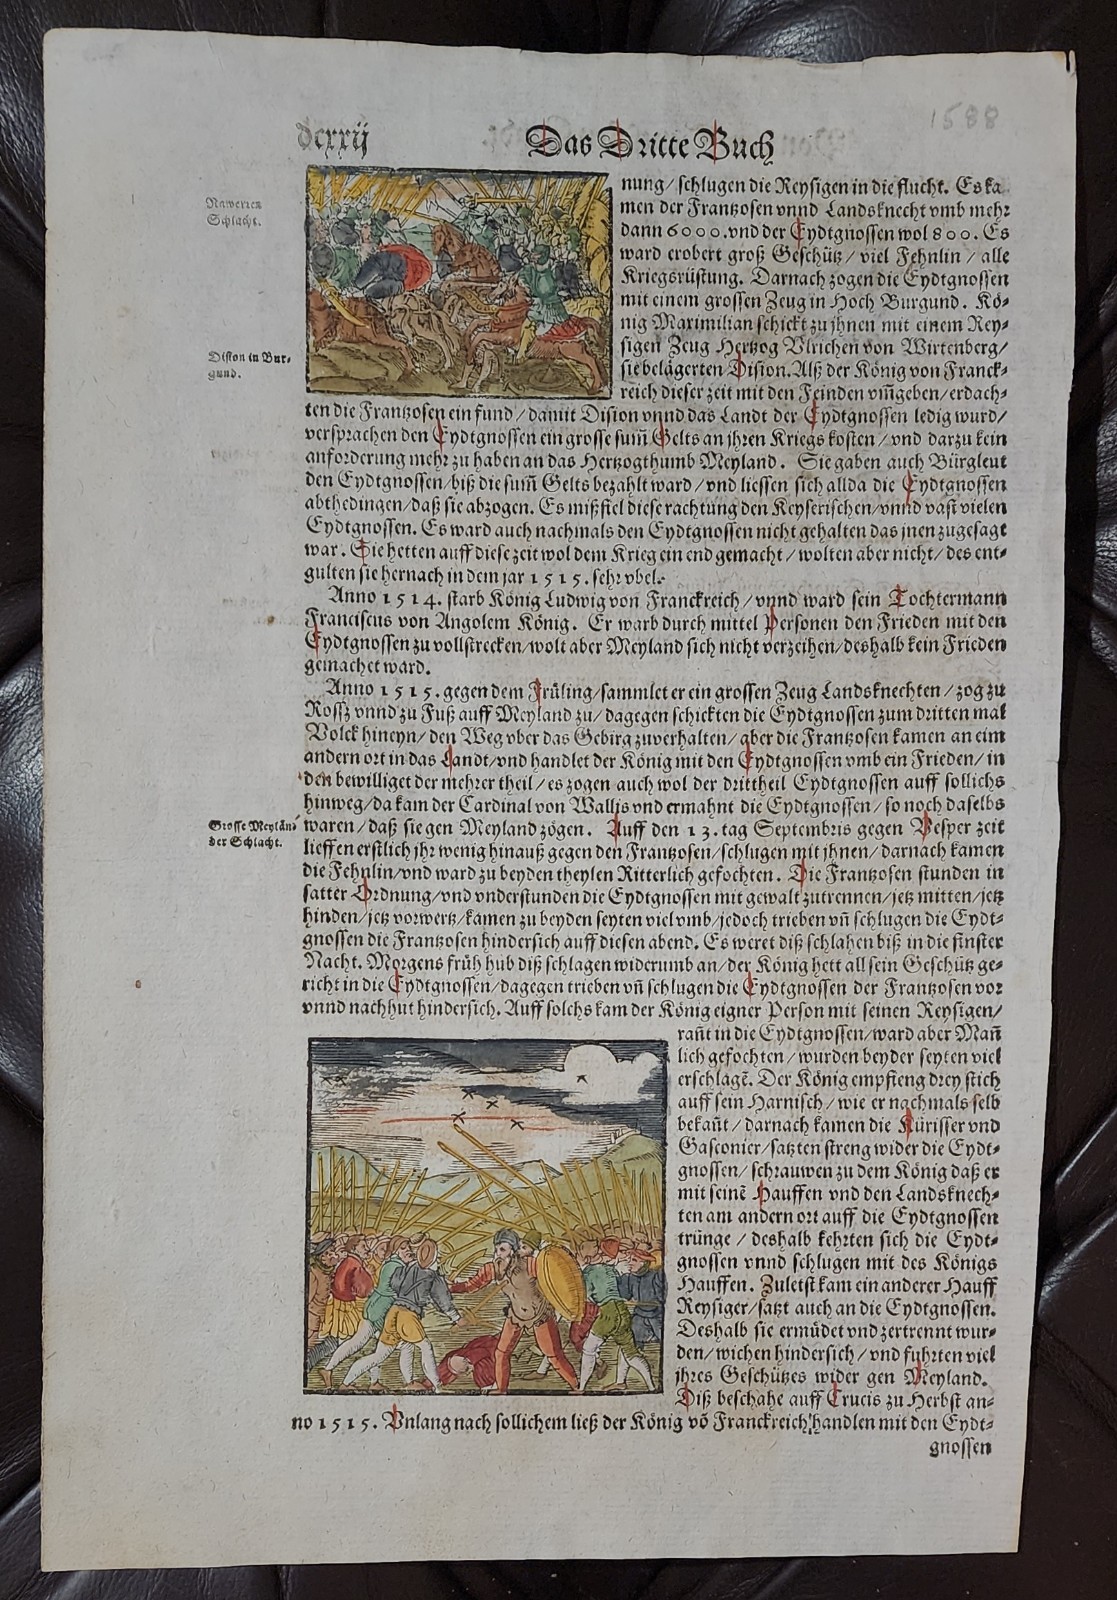 1588
dcxxij
Das Dritte Buch
Nawerren
Schlacht.
nung/ schlugen die Reysigen in die flucht. Es ka
men der Frantzosen vnnd Landsknecht vmb mehr
dann 6000. vnd der Eydtgnossen wol 800. Es
ward erobert groß Geschütz/ viel Fehnlin/ alle
Kriegsrüstung. Darnach zogen die Eydtgnossen
mit einem grossen Zeug in Hoch Burgund. Kö-
nig Maximilian schickt zu jhnen mit einem Rey-
sigen Zeug Hertzog Vlrichen von Wirtenberg/
sie belägerten Dision. Alß der König von Franck-
reich dieser zeit mit den Feinden vm̃geben/ erdach-
Dision in Bur-
gund.
ten die Frantzosen ein fund/ damit Dision vnnd das Landt der Eydtgnossen ledig wurd/
versprachen den Eydtgnossen ein grosse sum̃ Gelts an jhren Kriegs kosten/ vnd darzu kein
anforderung mehr zu haben an das Hertzogthumb Meyland. Sie gaben auch Bürgleut
den Eydtgnossen/ biß die sum̃ Gelts bezahlt ward/ vnd liessen sich allda die Eydtgnossen
abthedingen/ daß sie abzogen. Es mißfiel diese rachtung den Keyserischen/ vnnd vast vielen
Eydtgnossen. Es ward auch nachmals den Eydtgnossen nicht gehalten das jnen zugesagt
war. Sie hetten auff diese zeit wol dem Krieg ein end gemacht/ wolten aber nicht/ des ent-
gulten sie hernach in dem jar 1515. sehr vbel.
Anno 1514. starb König Ludwig von Franckreich/ vnnd ward sein Tochtermann
Franciscus von Angolem König. Er warb durch mittel Personen den Frieden mit den
Eydtgnossen zu vollstrecken/ wolt aber Meyland sich nicht verzeihen/ deshalb kein Frieden
gemachet ward.
Anno 1515. gegen dem Früling/ sammlet er ein grossen Zeug Landsknechten/ zog zu
Rossz vnnd zu Fuß auff Meyland zu/ dagegen schickten die Eydtgnossen zum dritten mal
Volck hineyn/ den Weg vber das Gebirg zuverhalten/ aber die Frantzosen kamen an eim
andern ort in das Landt/ vnd handlet der König mit den Eydtgnossen vmb ein Frieden/ in
den bewilliget der mehrer theil/ es zogen auch wol der drittheil Eydtgnossen auff sollichs
hinweg/ da kam der Cardinal von Wallis vnd ermahnt die Eydtgnossen/ so noch daselbs
Grosse Meylän-
der Schlacht.
waren/ daß sie gen Meyland zögen. Auff den 13. tag Septembris gegen Vesper zeit
lieffen erstlich jhr wenig hinauß gegen den Frantzosen/ schlugen mit jhnen/ darnach kamen
die Fehnlin/ vnd ward zu beyden theylen Ritterlich gefochten. Die Frantzosen stunden in
satter Ordnung/ vnd vnderstunden die Eydtgnossen mit gewalt zutrennen/ jetz mitten/ jetz
hinden/ jetz vorwertz/ kamen zu beyden seyten viel vmb/ jedoch trieben vn̄ schlugen die Eydt-
gnossen die Frantzosen hindersich auff diesen abend. Es weret diß schlahen biß in die finster
Nacht. Morgens früh hub diß schlagen widerumb an/ der König hett all sein Geschütz ge-
richt in die Eydtgnossen/ dagegen trieben vn̄ schlugen die Eydtgnossen der Frantzosen vor
vnnd nachhut hindersich. Auff solchs kam der König eigner Person mit seinen Reysigen/
ran̄t in die Eydtgnossen/ ward aber Man̄
lich gefochten/ wurden beyder seyten viel
erschlagē. Der König empfieng drey stich
auff sein Harnisch/ wie er nachmals selb
bekan̄t/ darnach kamen die Kürisser vnd
Gasconier/ satzten streng wider die Eydt-
gnossen/ schrauwen zu dem König daß er
mit seinē Hauffen vnd den Landsknech-
ten am andern ort auff die Eydtgnossen
trünge/ deshalb kehrten sich die Eydt-
gnossen vnnd schlugen mit des Königs
Hauffen. Zuletst kam ein anderer Hauff
Reysiger/ satzt auch an die Eydtgnossen.
Deshalb sie ermüdet vnd zertrennt wur-
den/ wichen hindersich/ vnd fuhrten viel
jhres Geschützes wider gen Meyland.
Diß beschahe auff Crucis zu Herbst an-
no 1515. Vnlang nach sollichem ließ der König vō Franckreich handlen mit den Eydt-
gnossen